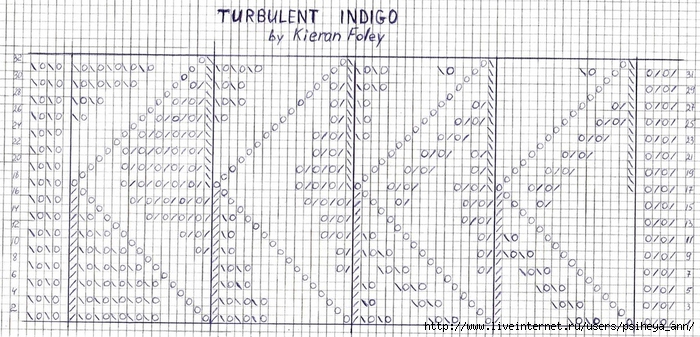 TURBULENT INDIGO
by Kieran Foley
32
31
30
29
28
27
26
25
24
23
22
21
20
19
18
17
16
15
14
13
12
11
10
9
8
7
6
5
4
3
2
http://www.liveinternet.ru/users/psiheya_ann/